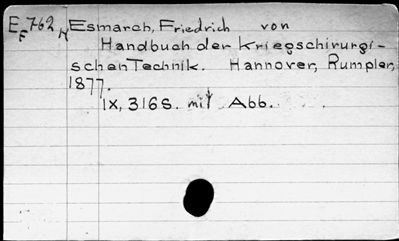 EF762H Esmarch, Friedrich von
Handbuch der Kriegschirurgi-
schen Technik. Hannover, Rumpler,
1877.
IX, 316 S. mit Abb.